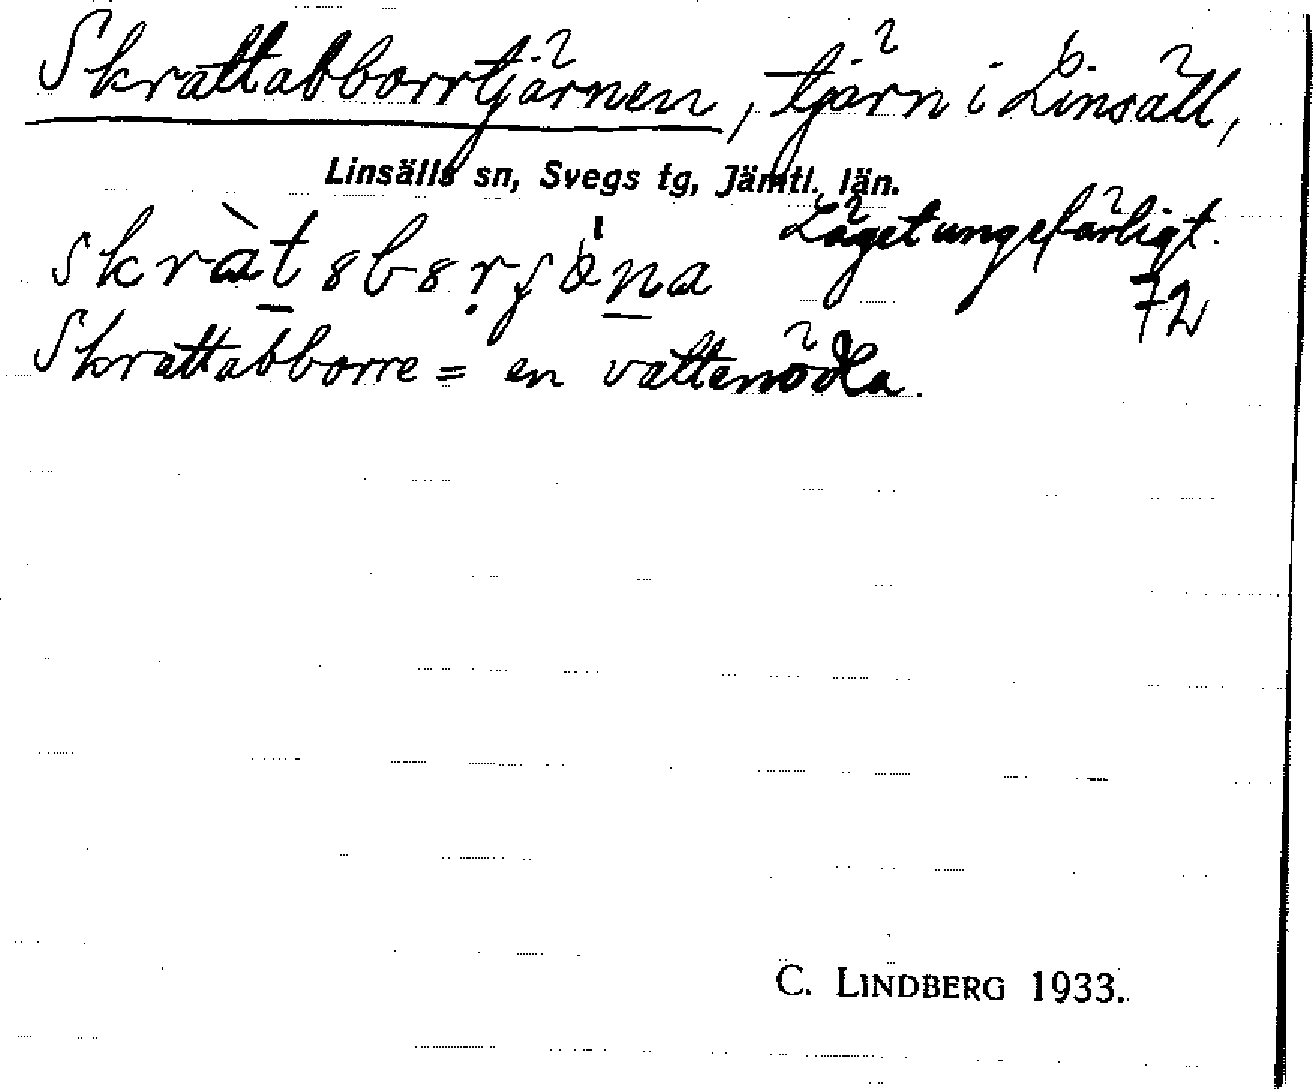 Skrattabborrtjärnen, tjärn i Linsäll,
Linsälls sn, Svegs tg, Jämtl. län.
Läget ungefärligt.
72
Skrattabborre = en vattenödla.
C. LINDBERG 1933.